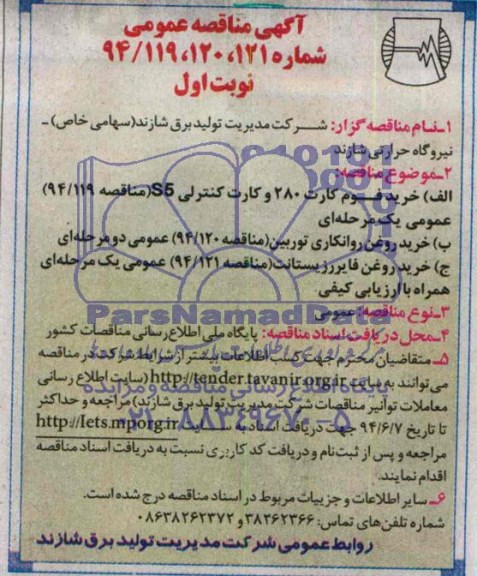 آگهی مناقصه عمومی
شماره ۱۲۱، ۱۲۰، ۹۴/۱۱۹
نوبت اول
۱ـ نام مناقصه گزار: شرکت مدیریت تولید برق شازند(سهامی خاص) ـ
نیروگاه حرارتی شازند
۲ـ موضوع مناقصه:
الف) خرید فوم کارت ۲۸۰ و کارت کنترلی S5(مناقصه ۹۴/۱۱۹)
عمومی یک مرحله‌ای
ب) خرید روغن روانکاری توربین(مناقصه ۹۴/۱۲۰) عمومی دو مرحله‌ای
ج) خرید روغن فایررزیستانت(مناقصه ۹۴/۱۲۱) عمومی یک مرحله‌ای
همراه با ارزیابی کیفی.
۳ـ نوع مناقصه: عمومی
ParsNamadData
۴ـ محل دریافت اسناد مناقصه: پایگاه ملی اطلاع رسانی مناقصات کشور
۵ـ متقاضیان محترم جهت کسب اطلاعات بیشتر از شرایط شرکت در مناقصه
می‌توانند به سایت http://tender.tavanir.org.ir (سایت اطلاع رسانی
معاملات توانیر مناقصات شرکت مدیریت تولید برق شازند) مراجعه و حداکثر
تا تاریخ ۹۴/۶/۷ جهت دریافت اسناد http://iets.mporg.ir
۰۲۱-۸۸۳۴۹۶۷۰-۵
مراجعه و پس از ثبت نام و دریافت کد کاربری نسبت به دریافت اسناد مناقصه
اقدام نمایند.
۶ـ سایر اطلاعات و جزییات مربوط در اسناد مناقصه درج شده است.
شماره تلفن‌های تماس: ۳۸۲۶۲۳۶۶ و ۰۸۶۳۸۲۶۲۳۷۲
روابط عمومی شرکت مدیریت تولید برق شازند